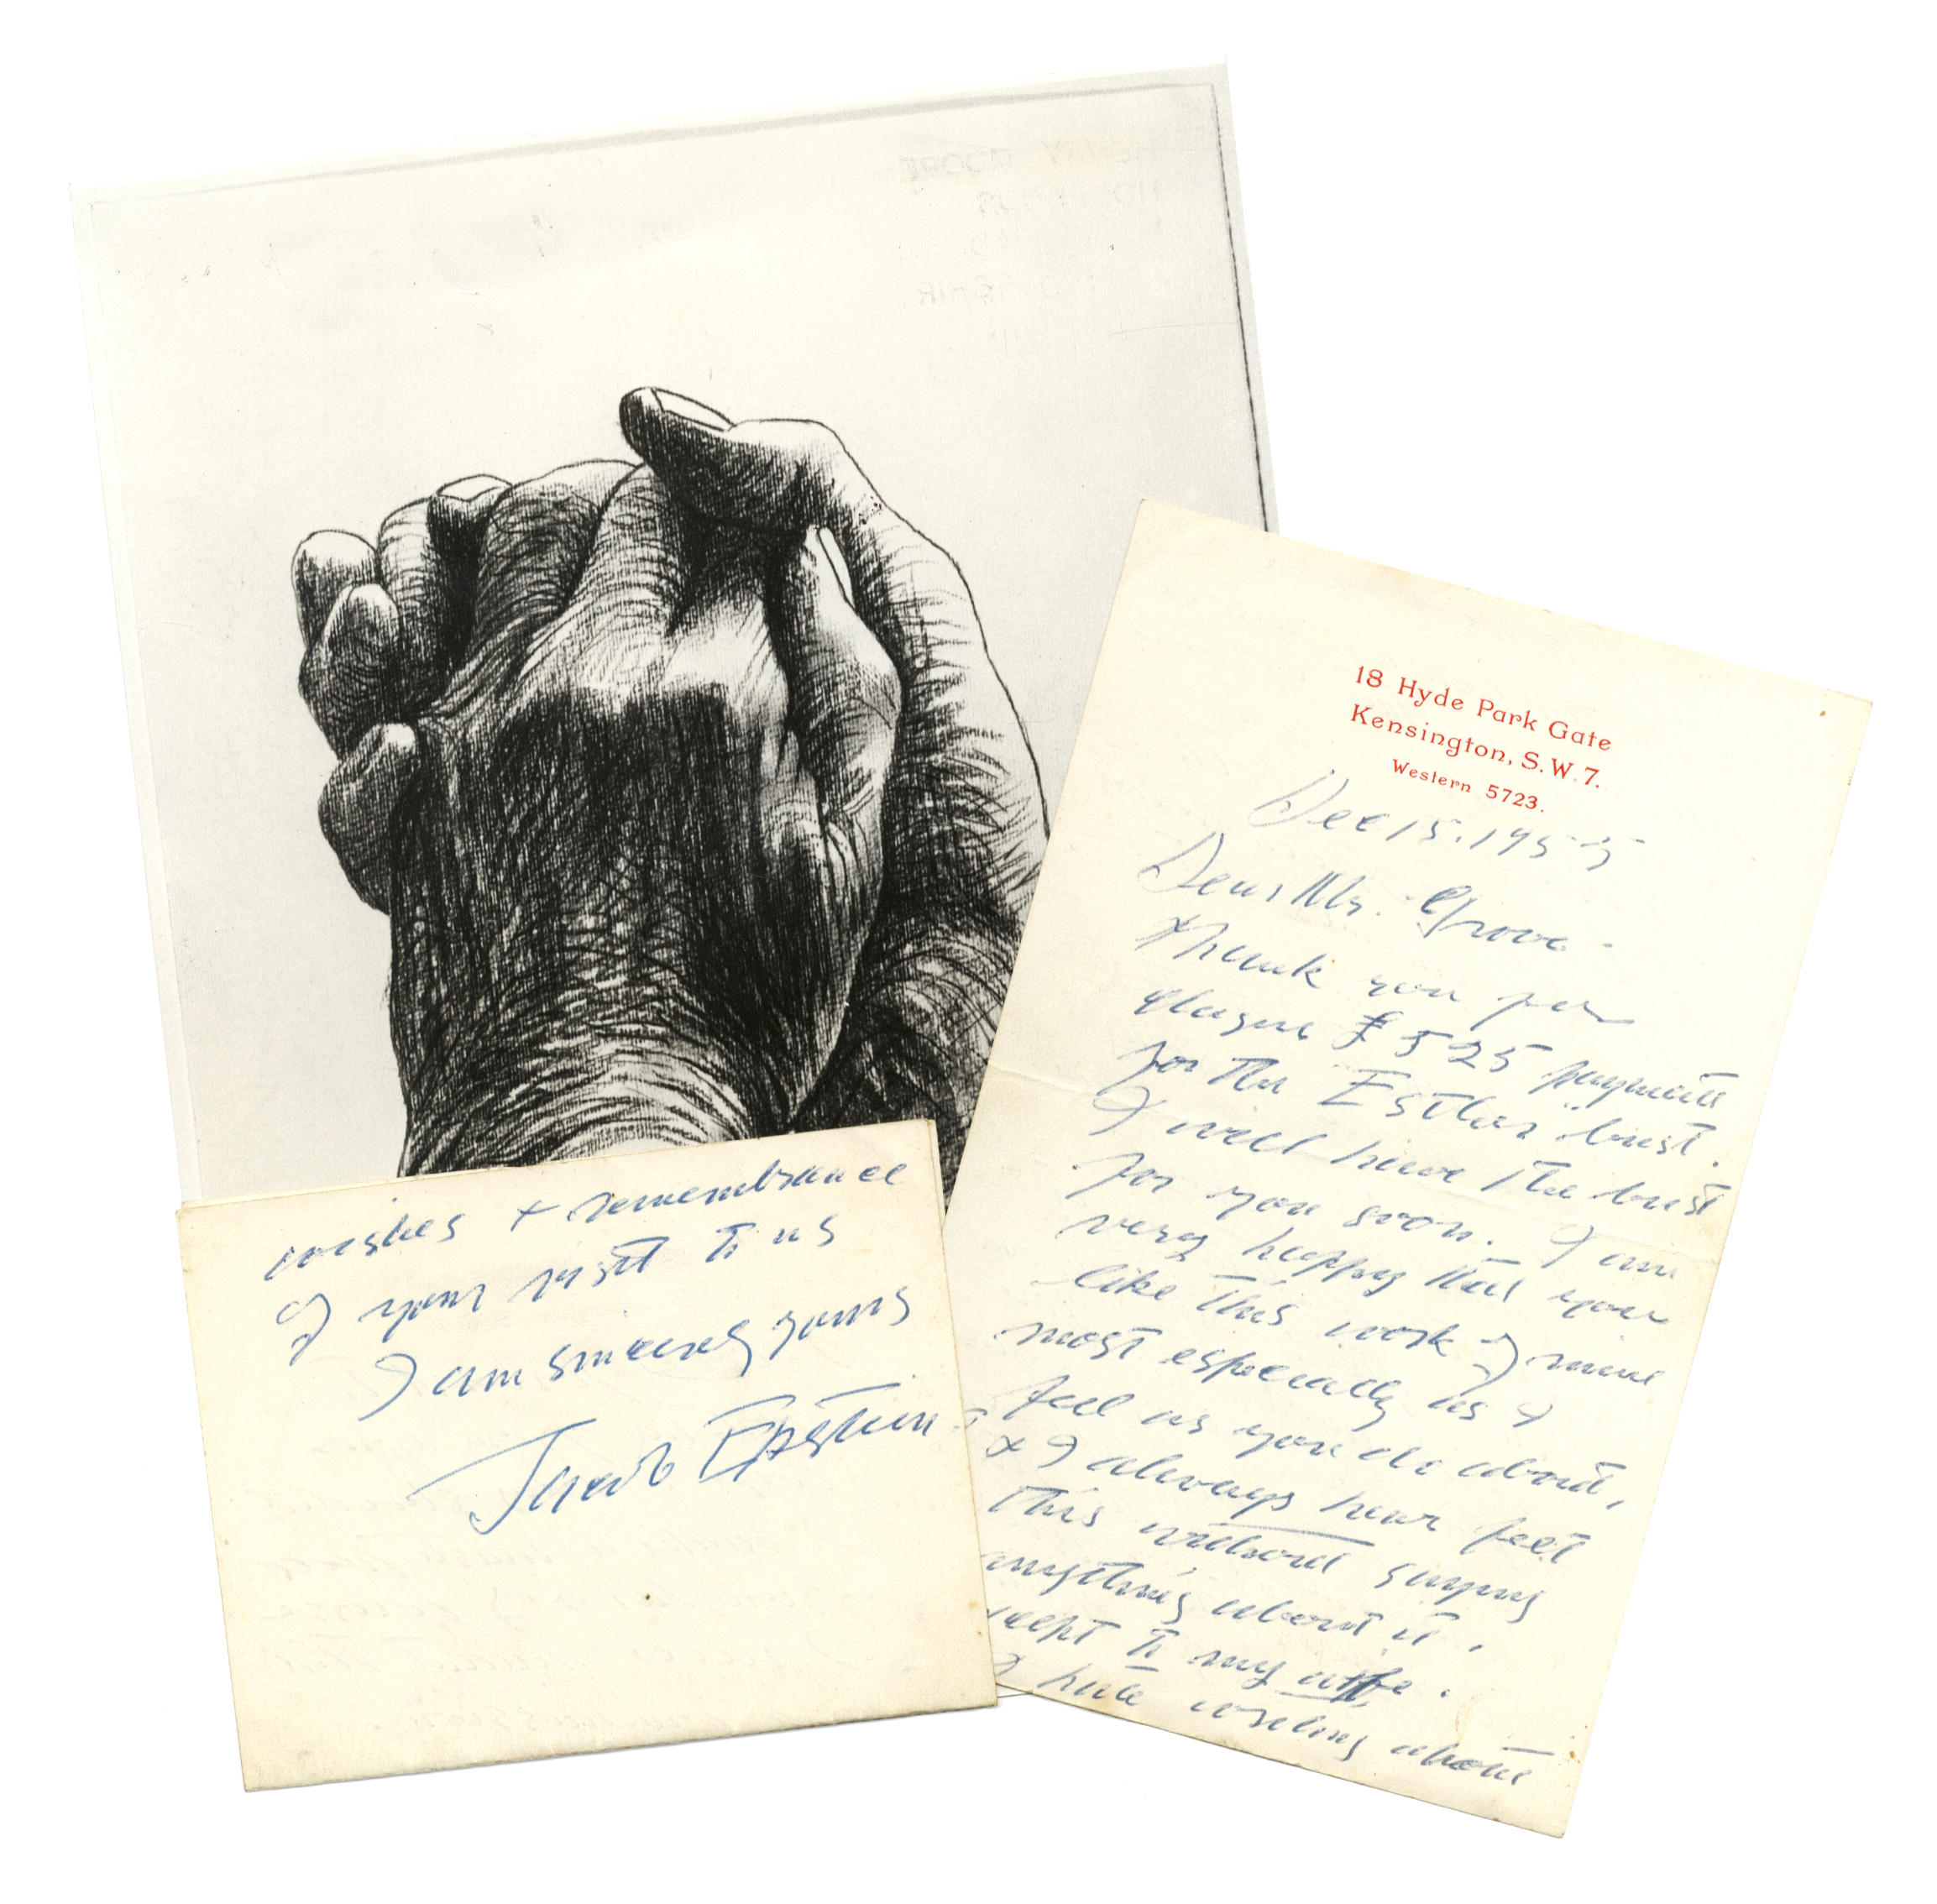 18 Hyde Park Gate
Kensington, S.W.7.
Western 5723.
Dec 15. 1955
Dear Mr. Grove -
Thank you for
cheque £525 payment
for the "Esther" bust.
I will have the bust
for you soon. I am
very happy that you
like this work of mine
most especially as I
feel as you do about,
& I always have felt
this without saying
anything about it,
except to my wife.
I hate writing about
wishes & remembrance
of your visit to us
I am sincerely yours
Jacob Epstein.